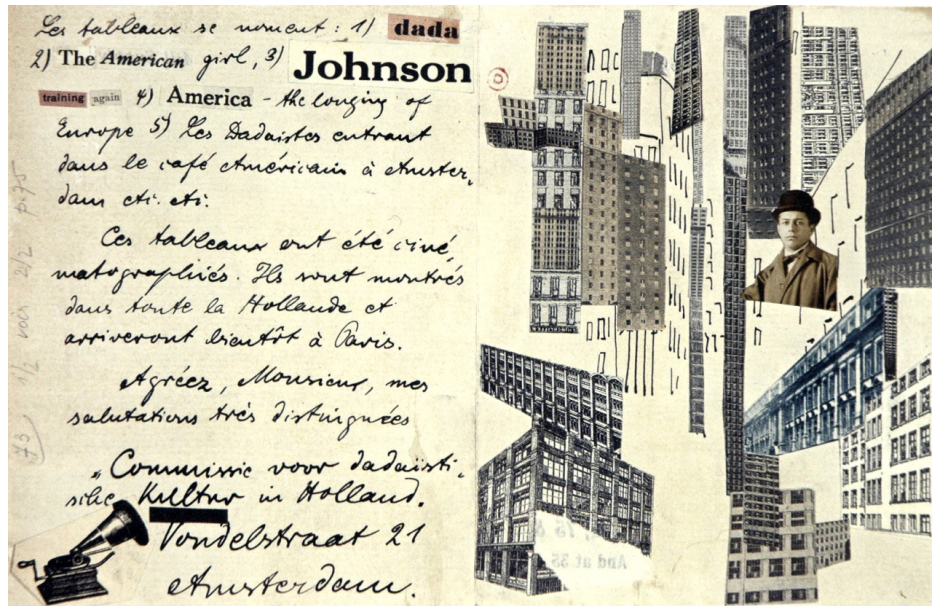 Les tableaux se nomment : 1) dada
2) The American girl, 3) Johnson
training again 4) America - the longing of
Europe 5) Les Dadaistes entrant
dans le café Américain à Amster,
dam etc. etc.
Ces tableaux ont été ciné,
matographiés. Ils sont montrés
dans toute la Hollande et
arriveront bientôt à Paris.
Agréez, Monsieur, mes
salutations très distinguées
„Commissie voor dadaisti,
sche Kultur in Holland.
Vondelstraat 21
Amsterdam.
1/2 vois 2/2 p. 75
73
And at 35